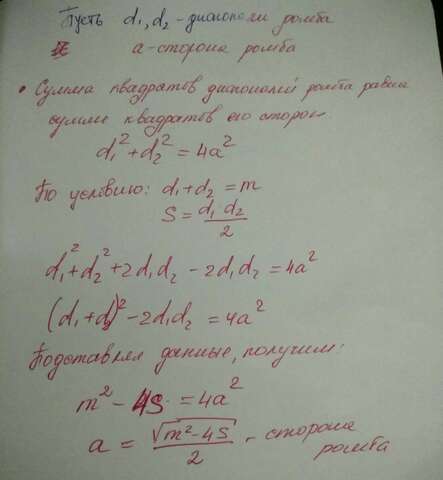 Пусть d₁, d₂ - диагонали ромба
a - сторона ромба
• Сумма квадратов диагоналей ромба равна
сумме квадратов его сторон.
d₁² + d₂² = 4a²
По условию: d₁ + d₂ = m
S = d₁ d₂ / 2
d₁² + d₂² + 2d₁d₂ - 2d₁d₂ = 4a²
(d₁ + d₂)² - 2d₁d₂ = 4a²
Подставляя данные, получим:
m² - 4S = 4a²
a = √(m² - 4S) / 2 - сторона
ромба